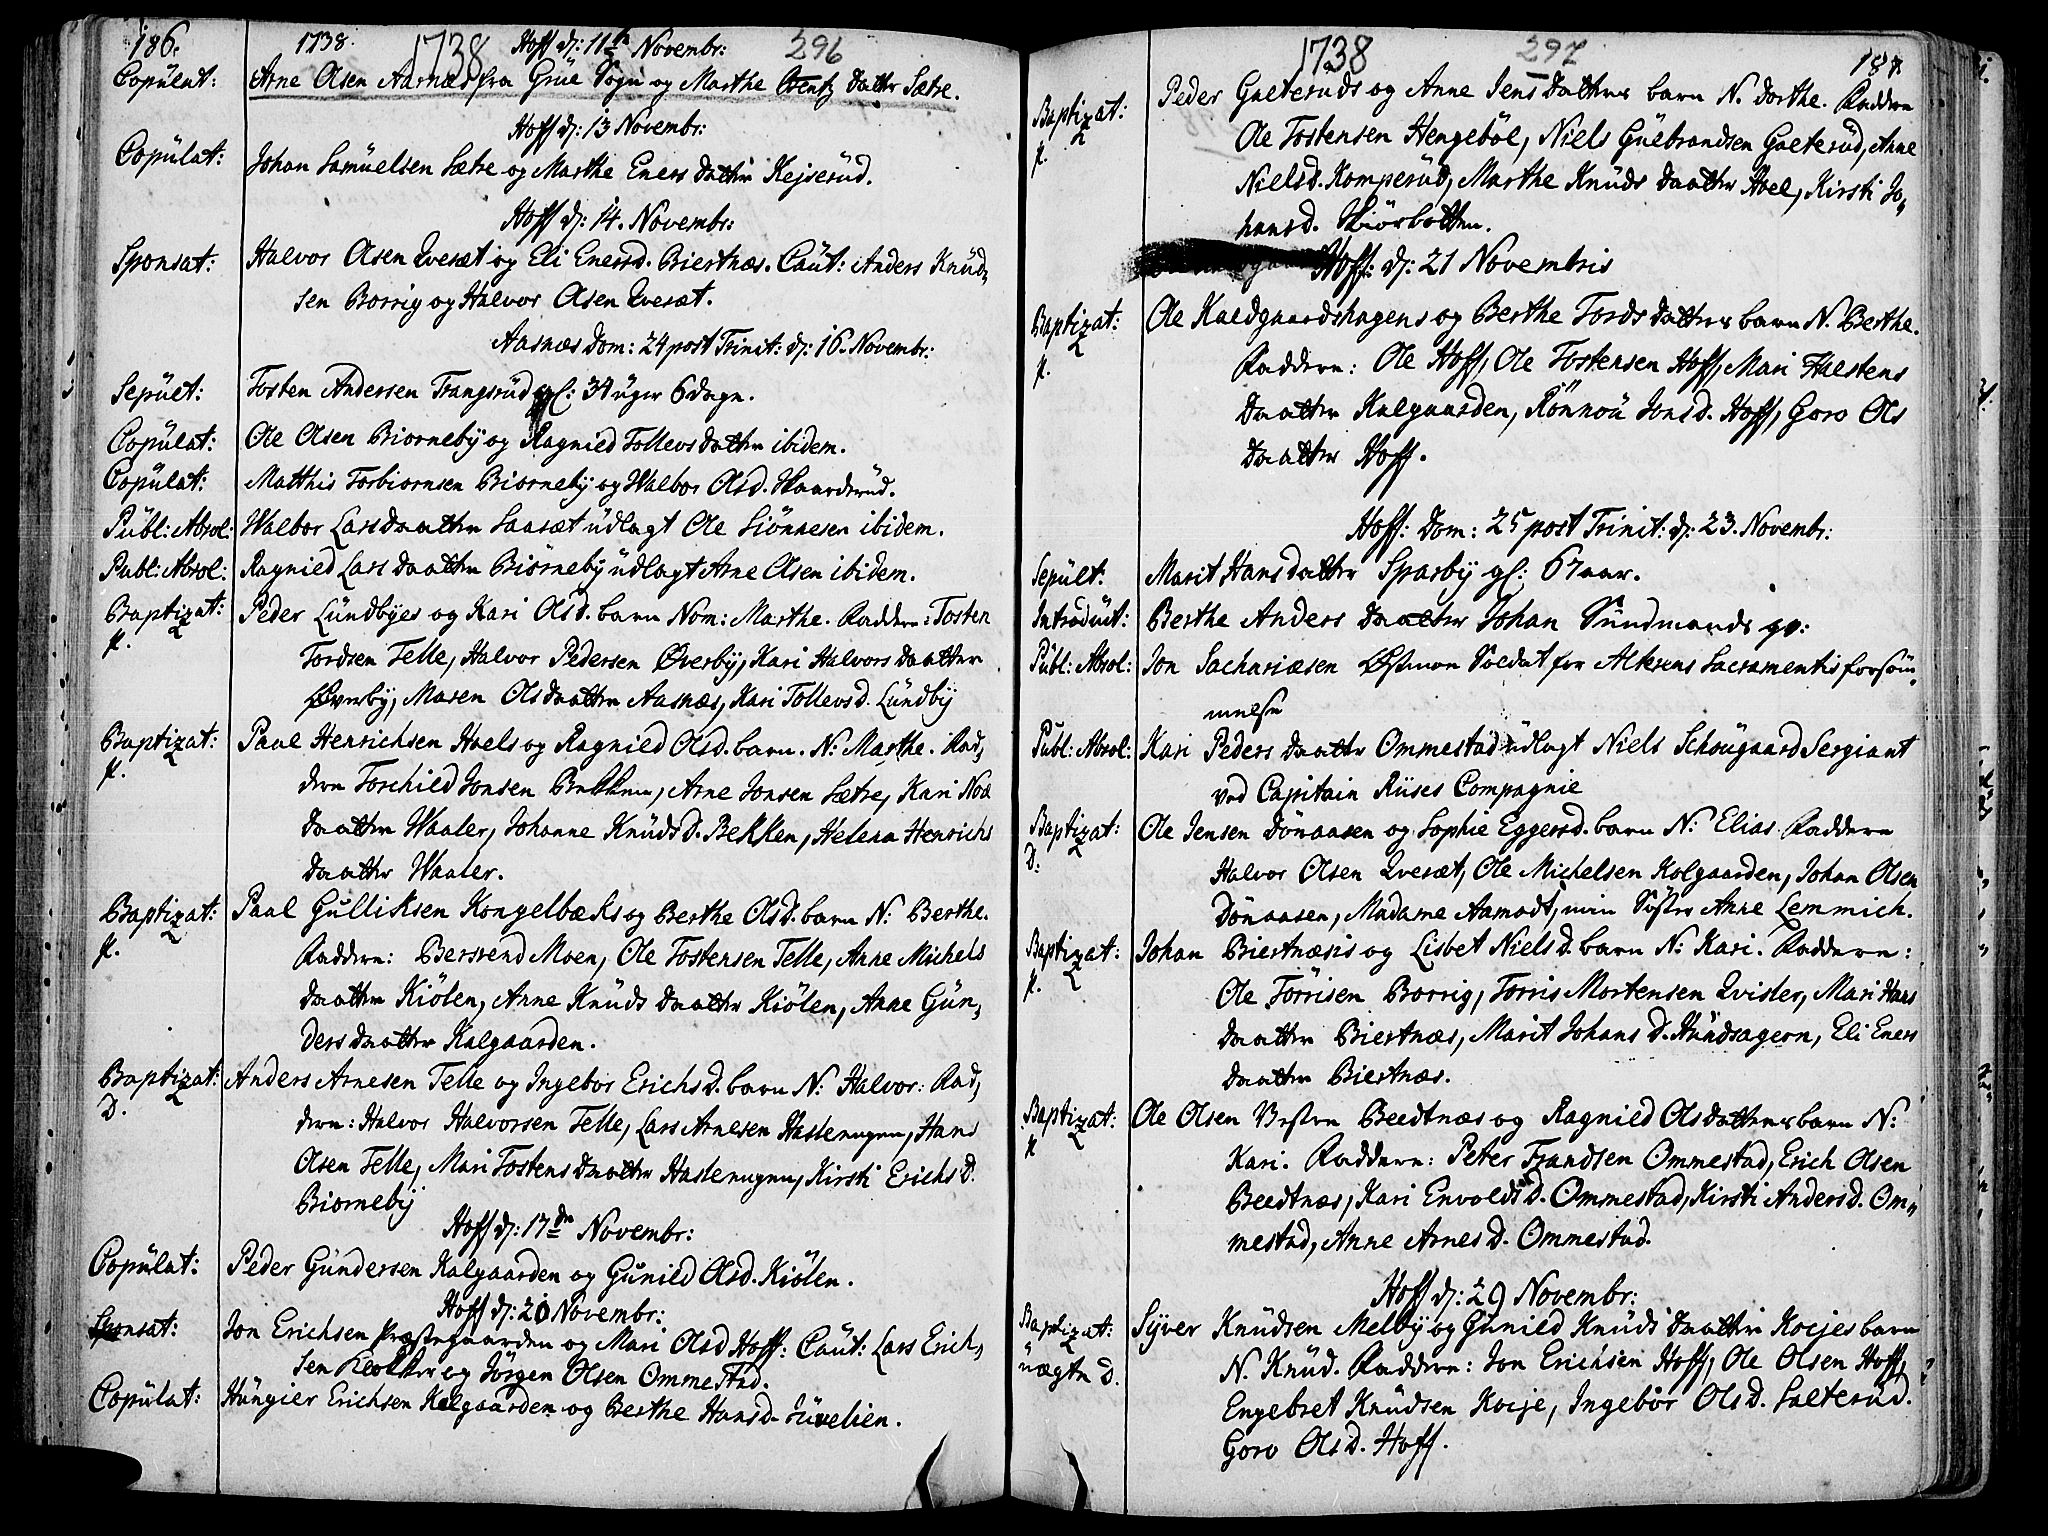 186. 1738. 1738 Hoff d: 11te Novembr: 296
Copulat: Arne Olsen Aarnæs fra Grüe Sogn og Marthe Daatter Sætre.
Hoff d: 13 Novembr:
Copülat: Johan Samuelsen Sætre og Marthe Eners Datter Kejserüd.
Hoff d: 14. Novembr:
Sponsat: Halvor Olsen Qvesæt og Eli Enersd. Biertnæs. Caut: Anders Knüd-
sen Borrig og Halvor Olsen Qvesæt.
Aasnæs Dom: 24 post Trinit: d: 16. Novembr:
Sepült: Tosten Andersen Trangsrüd gl: 34 uger 6 dage.
Copülat: Ole Olsen Biorneby og Ragnild Tollevsdatter ibidem.
Copülat: Matthis Torbiornsen Biorneby og Walbor Olsd. Skaarderüd.
Pübl: Absol: Walbor Larsdaatter Saasæt üdlagt Ole Siönnesen ibidem.
Publ: Absol: Ragnild Lars Daatter Biorneby üdlagt Arne Olsen ibidem.
Baptizat: Peder Lündbyes og Kari Olsd. barn Nom: Marthe. Faddere: Tosten
p. Tordsen Telle, Halvor Pedersen Øverby, Kari Halvors Daatter
Øverby, Maren Olsdaatter Aasnæs, Kari Tollevsd. Lündby
Baptizat: Paul Henrichsen Hoels og Ragnild Olsd. barn. N: Marthe. Fad,
p. dere Torchild Jonsen Bekken, Arne Jonsen Sætre, Kari Noa
Daatter Waaler, Johanne Knüdsd. Bekken, Helena Henrichs
Daatter Waaler.
Baptizat: Paul Gulliksen Kongelbæks og Berthe Olsd. barn N: Berthe.
p. Faddere: Berrend Moen, Ole Tostensen Telle, Anne Michels
Daatter Kiölen, Anne Knüds Daatter Kiölen, Anne Gün,
dersdaatter Kalgaarden.
Baptizat: Anders Arnesen Telle og Ingebor Erichsd. barn N: Halvor: Fad,
D. dere: Halvor Halvorsen Telle, Lars Arnesen Haslerügen, Hans
Olsen Telle, Mari Tostensdaatter Haslerügen, Kirsti Erichsd.
Biorneby
Hoff d: 17de Novembr:
Copülat: Peder Gündersen Kalgaarden og Günild Olsd. Kiölen.
Hoff d: 20 Novembr:
Sponsat: Jon Erichsen Præstegaarden og Mari Olsd Hoff: Caüt: Lars Erich,
sen Klokker og Jörgen Olsen Ommestad.
Copülat: Hüngier Erichsen Kalgaarden og Berthe Hansd. Jüvelien.
1738 297 187
Baptizat: Peder Gaeterüds og Anne Jens Datters barn N. Dorthe. Faddere
p. Ole Tostensen Hengeböl, Niels Gülbrandsen Gaeterüd, Anne
Nielsd. Kamperüd, Marthe Knüds Daatter Hoel, Kirsti Jo,
hansd. Skiörbotten.
Hoff: d: 21 Novembris
Baptizat: Ole Kaldgaardshagens og Berthe Tordsdatters barn N. Berthe.
p. Faddere: Ole Hoff, Ole Tostensen Hoff, Mari Halstens
Daatter Kalgaarden, Rönnoü Jonsd. Hoff, Goro Ols
Daatter Hoff.
Hoff: Dom: 25 post Trinit: d: 23. Novembr:
Sepült: Marit Hansdatter Sparby gl: 67 aar.
Introdüct: Berthe Anders Daatter Johan Sundmands qv:
Pübl: Absol: Jon Sachariæsen Østmoe Soldat for Alterens Sacramentis forsöm
melse
Pübl: Absol: Kari Peders Daatter Ommestad üdlagt Niels Schougaard Sergiant
ved Capitain Rüses Compagnie
Baptizat: Ole Jensen Dönaasen og Sophie Eggersd. barn N: Elias Faddere
D. Halvor Olsen Qvesæt, Ole Michelsen Kolgaarden, Johan Olsen
Dönaasen, Madame Aamodt, min Söster Anne Lemmich.
Baptizat: Johan Biertnæsis og Lisbet Nielsd. barn N: Kari. Faddere:
p. Ole Törrisen Borrig, Torris Mortensen Qvisler, Mari Hans
Daatter Biertnæs, Marit Johansd. Hündsagern, Eli Eners
Daatter Biertnæs.
Baptizat: Ole Olsen Vestre Beedtnæs og Ragnild Olsdatters barn N:
p Kari. Faddere: Peter Frandsen Ommestad, Erich Olsen
Beedtnæs, Kari Envoldsd. Ommestad, Kirsti Andersd. Om,
mestad, Anne Arnesd. Ommestad.
Hoff d: 29 Novembr:
Baptizat: Syver Knüdsen Melby og Günild Knüds Daatter Kocjes barn
üægte D. N. Knüd. Faddere: Jon Erichsen Hoff, Ole Olsen Hoff,
Engebret Knüdsen Kocje, Ingebor Olsd. Salterüd.
Goro Olsd. Hoff.